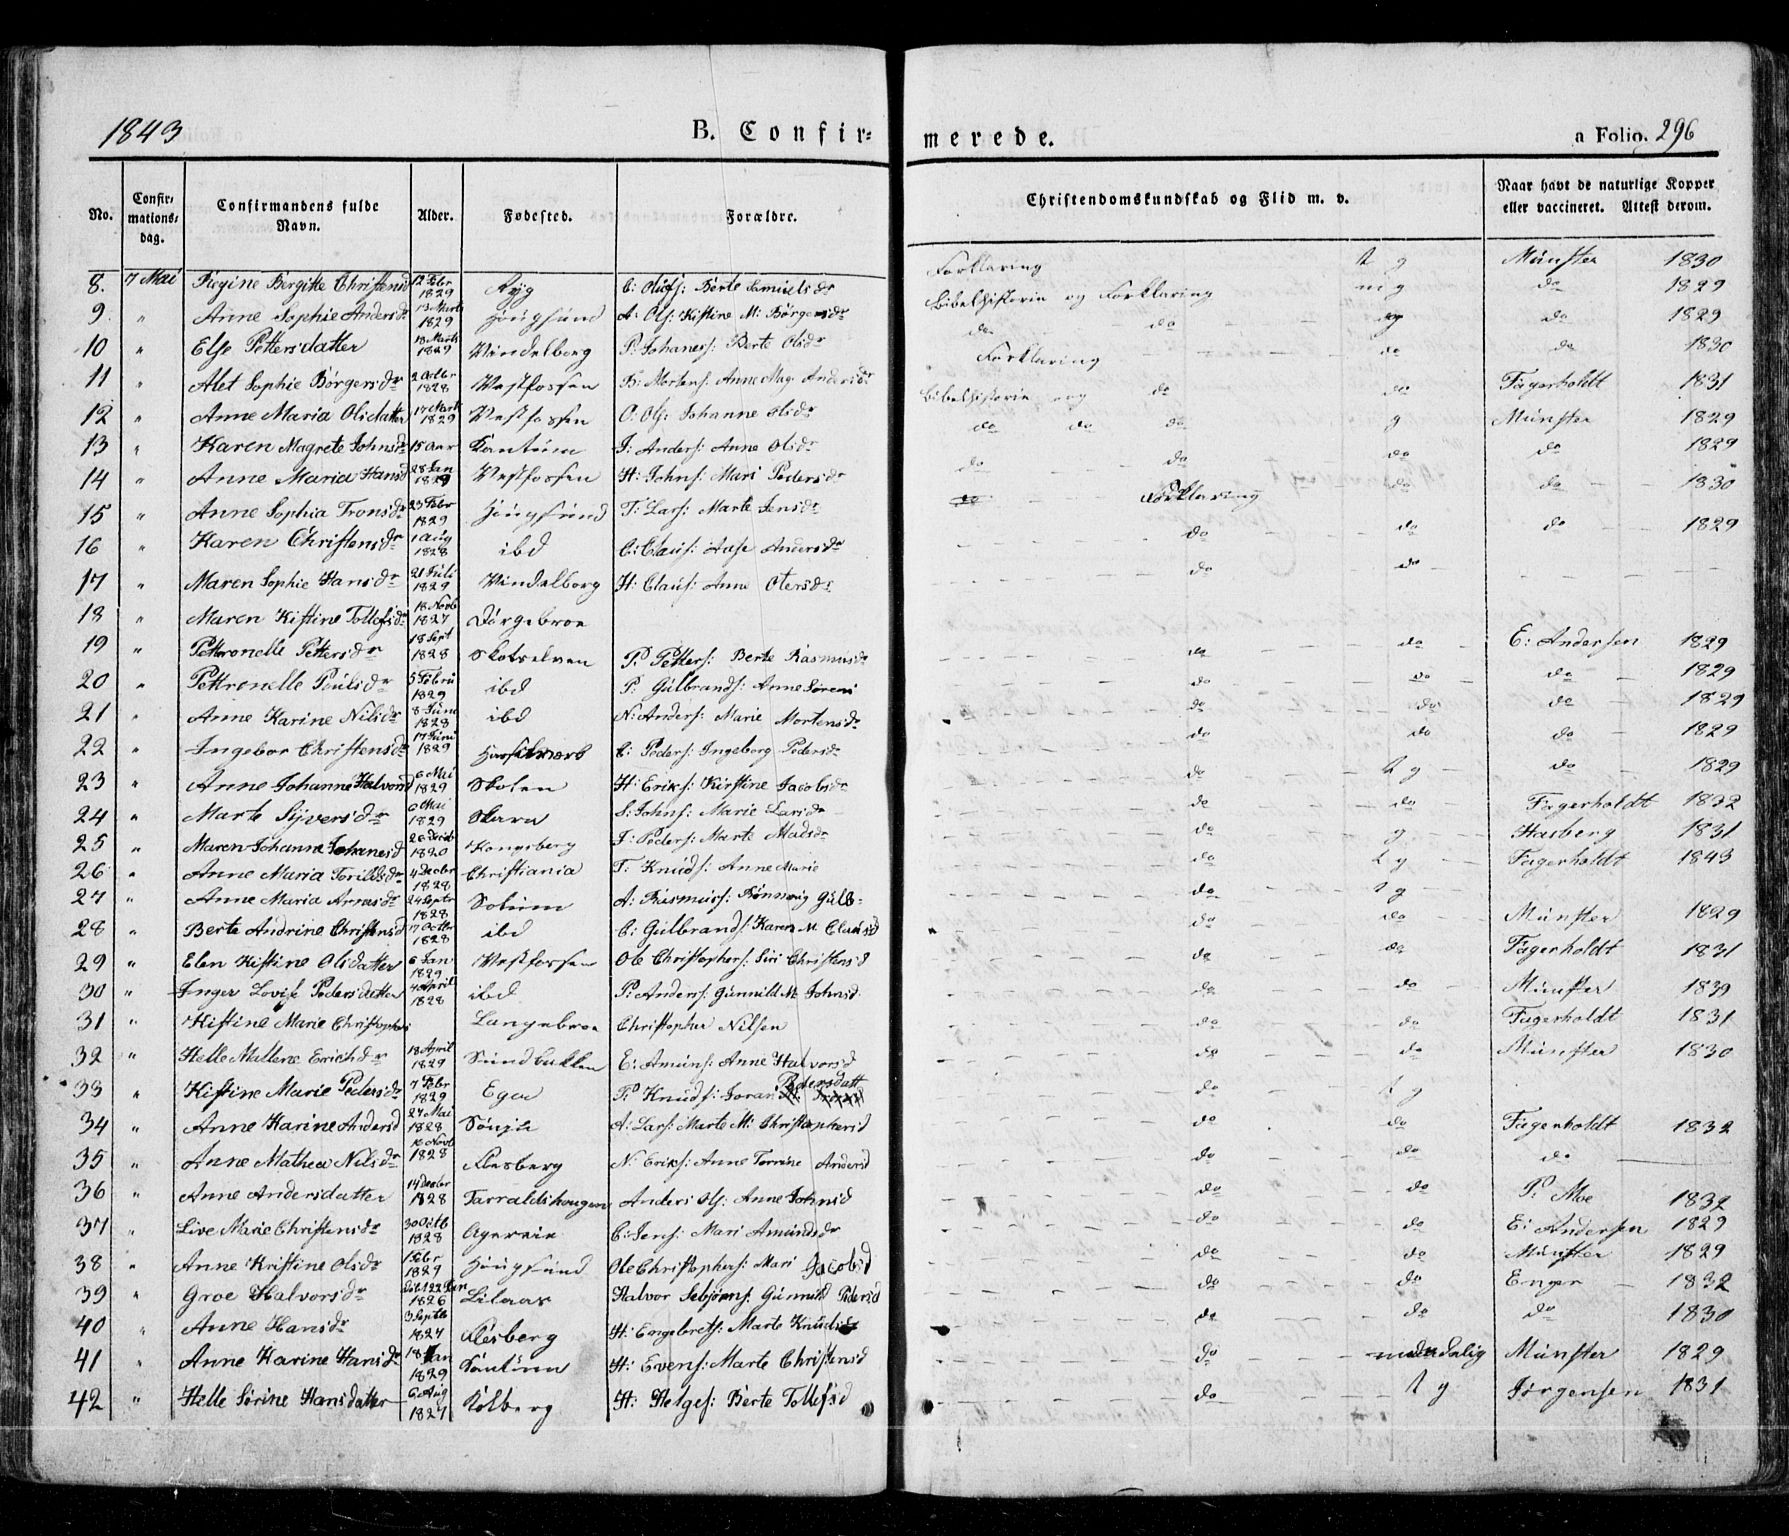 1843 B. Confirmerede. a Folio. 296
No. Confirmationsdag. Confirmandens fulde Navn. Alder. Fødested. Forældre. Christendomskundskab og Flid m. v. Naar havt de naturlige Kopper eller vaccineret. Attest derom.
8. 7 Mai Regine Bergitte Christensd 12 Febr 1829 Ryg C: Olufs: Berte Samuelsdr Forklaring t g Münster 1830
9. " Anne Sophie Andersdr 13 Marts 1829 Hougsund A: Ols: Kistine M: Børgersdr Bibelhistorie og Forklaring m g do 1829
10 " Else Pettersdatter 18 Marts 1829 Vindelborg P: Johanes: Berte Olsdr do do g do 1829
11 " Alet Sophie Børgersdr 2 Octbr 1828 Vestfossen B: Mortens: Anne Mag. Andersdr Forklaring do do 1830
12 " Anne Maria Olsdatter 17 Marts 1829 Vestfossen O: Ols: Johanne Olsdr Bibelhistorie og do do Fagerholdt 1831
13 " Karen Magrete Johnsdr 15 Aar Santum J: Anders: Anne Olsdr do do do g Münster 1829
14 " Anne Maria Hansd 28 Jan 1829 Vestfossen H: Johns: Mari Pedersdr do do do do 1829
15 " Anne Sophia Tronsdr 23 Febr 1829 Hougsund T: Lars: Marte Jensdr do Forklaring do do 1830
16 " Karen Christensdr 1 Aug 1828 ibd C: Claus: Anne Andersdr do do do 1829
17 " Maren Sophie Hansdr 21 Juli 1829 Vindelborg H: Claus: Anne Olersdr do do
18 " Maren Kistine Tollefsdr 18 Novb 1827 Dørgebroe
19 " Petronelle Pettersdr 18 Sept 1828 Skotselven P: Petters: Berte Rasmusdr do do E: Andersen 1829
20 " Pettronelle Paulsdr 5 Febru 1829 ibd P: Gulbrands: Anne Sørens do do do 1829
21 " Anne Karine Nilsdr 8 Juni 1828 ibd N: Anders: Marie Mortensdr do do do 1829
22 " Ingebor Christensdr 17 Juni 1829 C: Peders: Ingeborg Pedersdr do do do 1829
23 " Anne Johanne Halvorsd 6 Mai 1829 Skolen H: Eriks: Kirstine Jacobsdr do t g do 1829
24 " Marte Syversdr 6 Mai 1829 Skara S: Johns: Marie Larsdr do do Fagerholdt 1832
25 " Maren Johanne Johanesd 26 1820 Kongsberg J: Peders: Marte Madsdr do g Hasberg 1831
26 " Anne Maria Torildsdr 4 Decbr 1828 Christiania T: Knuds: Anne Marie do t g Fagerholdt 1843
27 " Anne Maria Arnesdr 24 Septr 1828 Solum A: Rasmus: Rønnaug Gulb- do t g
28 " Berte Andrine Christensd 17 Octbr 1828 ibd C: Gulbrands: Karen M. Clausd do do Münster 1829
29 " Elen Kistine Olsdatter 6 Jan 1829 Vestfossen Ole Christophers: Siri Christensd do do Fagerholdt 1831
30 " Inger Lovise Pedersdatter 4 April 1828 ibd P: Anders: Gunnild M. Johnsd do do Münster 1839
31 " Kistine Marie Christophers Langebroe Christopher Nilsen do do Fagerholdt 1831
32 " Helle Mallene Erichsdr 18 April 1829 Sundbakken E: Amuns: Anne Halvorsd do do Münster 1830
33 " Kistine Marie Pedersdr 7 Febr 1829 Eger P: Knuds: Joran Pedersdatt do t g
34 " Anne Karine Andersd 27 Mai 1828 Sønju A: Lars: Marte M: Christophersd do do Fagerholdt 1832
35 " Anne Mathea Nilsdr 16 Novb 1828 Flesberg N: Eriks: Anne Torrine Andersd do do do
36 " Anne Andersdatter 14 Decbr 1828 Tarraldshougen Anders Ols: Anne Johnsd do do P: Moe 1832
37 " Live Marie Christensdr 30 Octb 1828 Ageraie C: Jens: Mari Amundsdr do do E: Andersen 1829
38 " Anne Kristine Olsdr 1 Febr 1829 Hougsund Ole Christophers: Mari Jacobsd do do Münster 1829
39 " Groe Halvorsdr 1826 Lilaas Halvor Sebjørns: Gunnild Pedersd do do Enger 1832
40 " Anne Hansdr 3 Septb 1827 Flesberg H: Engebrets: Marte Knudsdr do do do 1830
41 " Anne Karine Hansdr 18 Jan 1829 Santum H: Evens: Marte Christensd do maadelig Münster 1829
42 " Helle Sørine Hansdatter 6 Aug 1827 Kolberg H: Helges: Berte Tollefsd do t g Jørgensen 1831